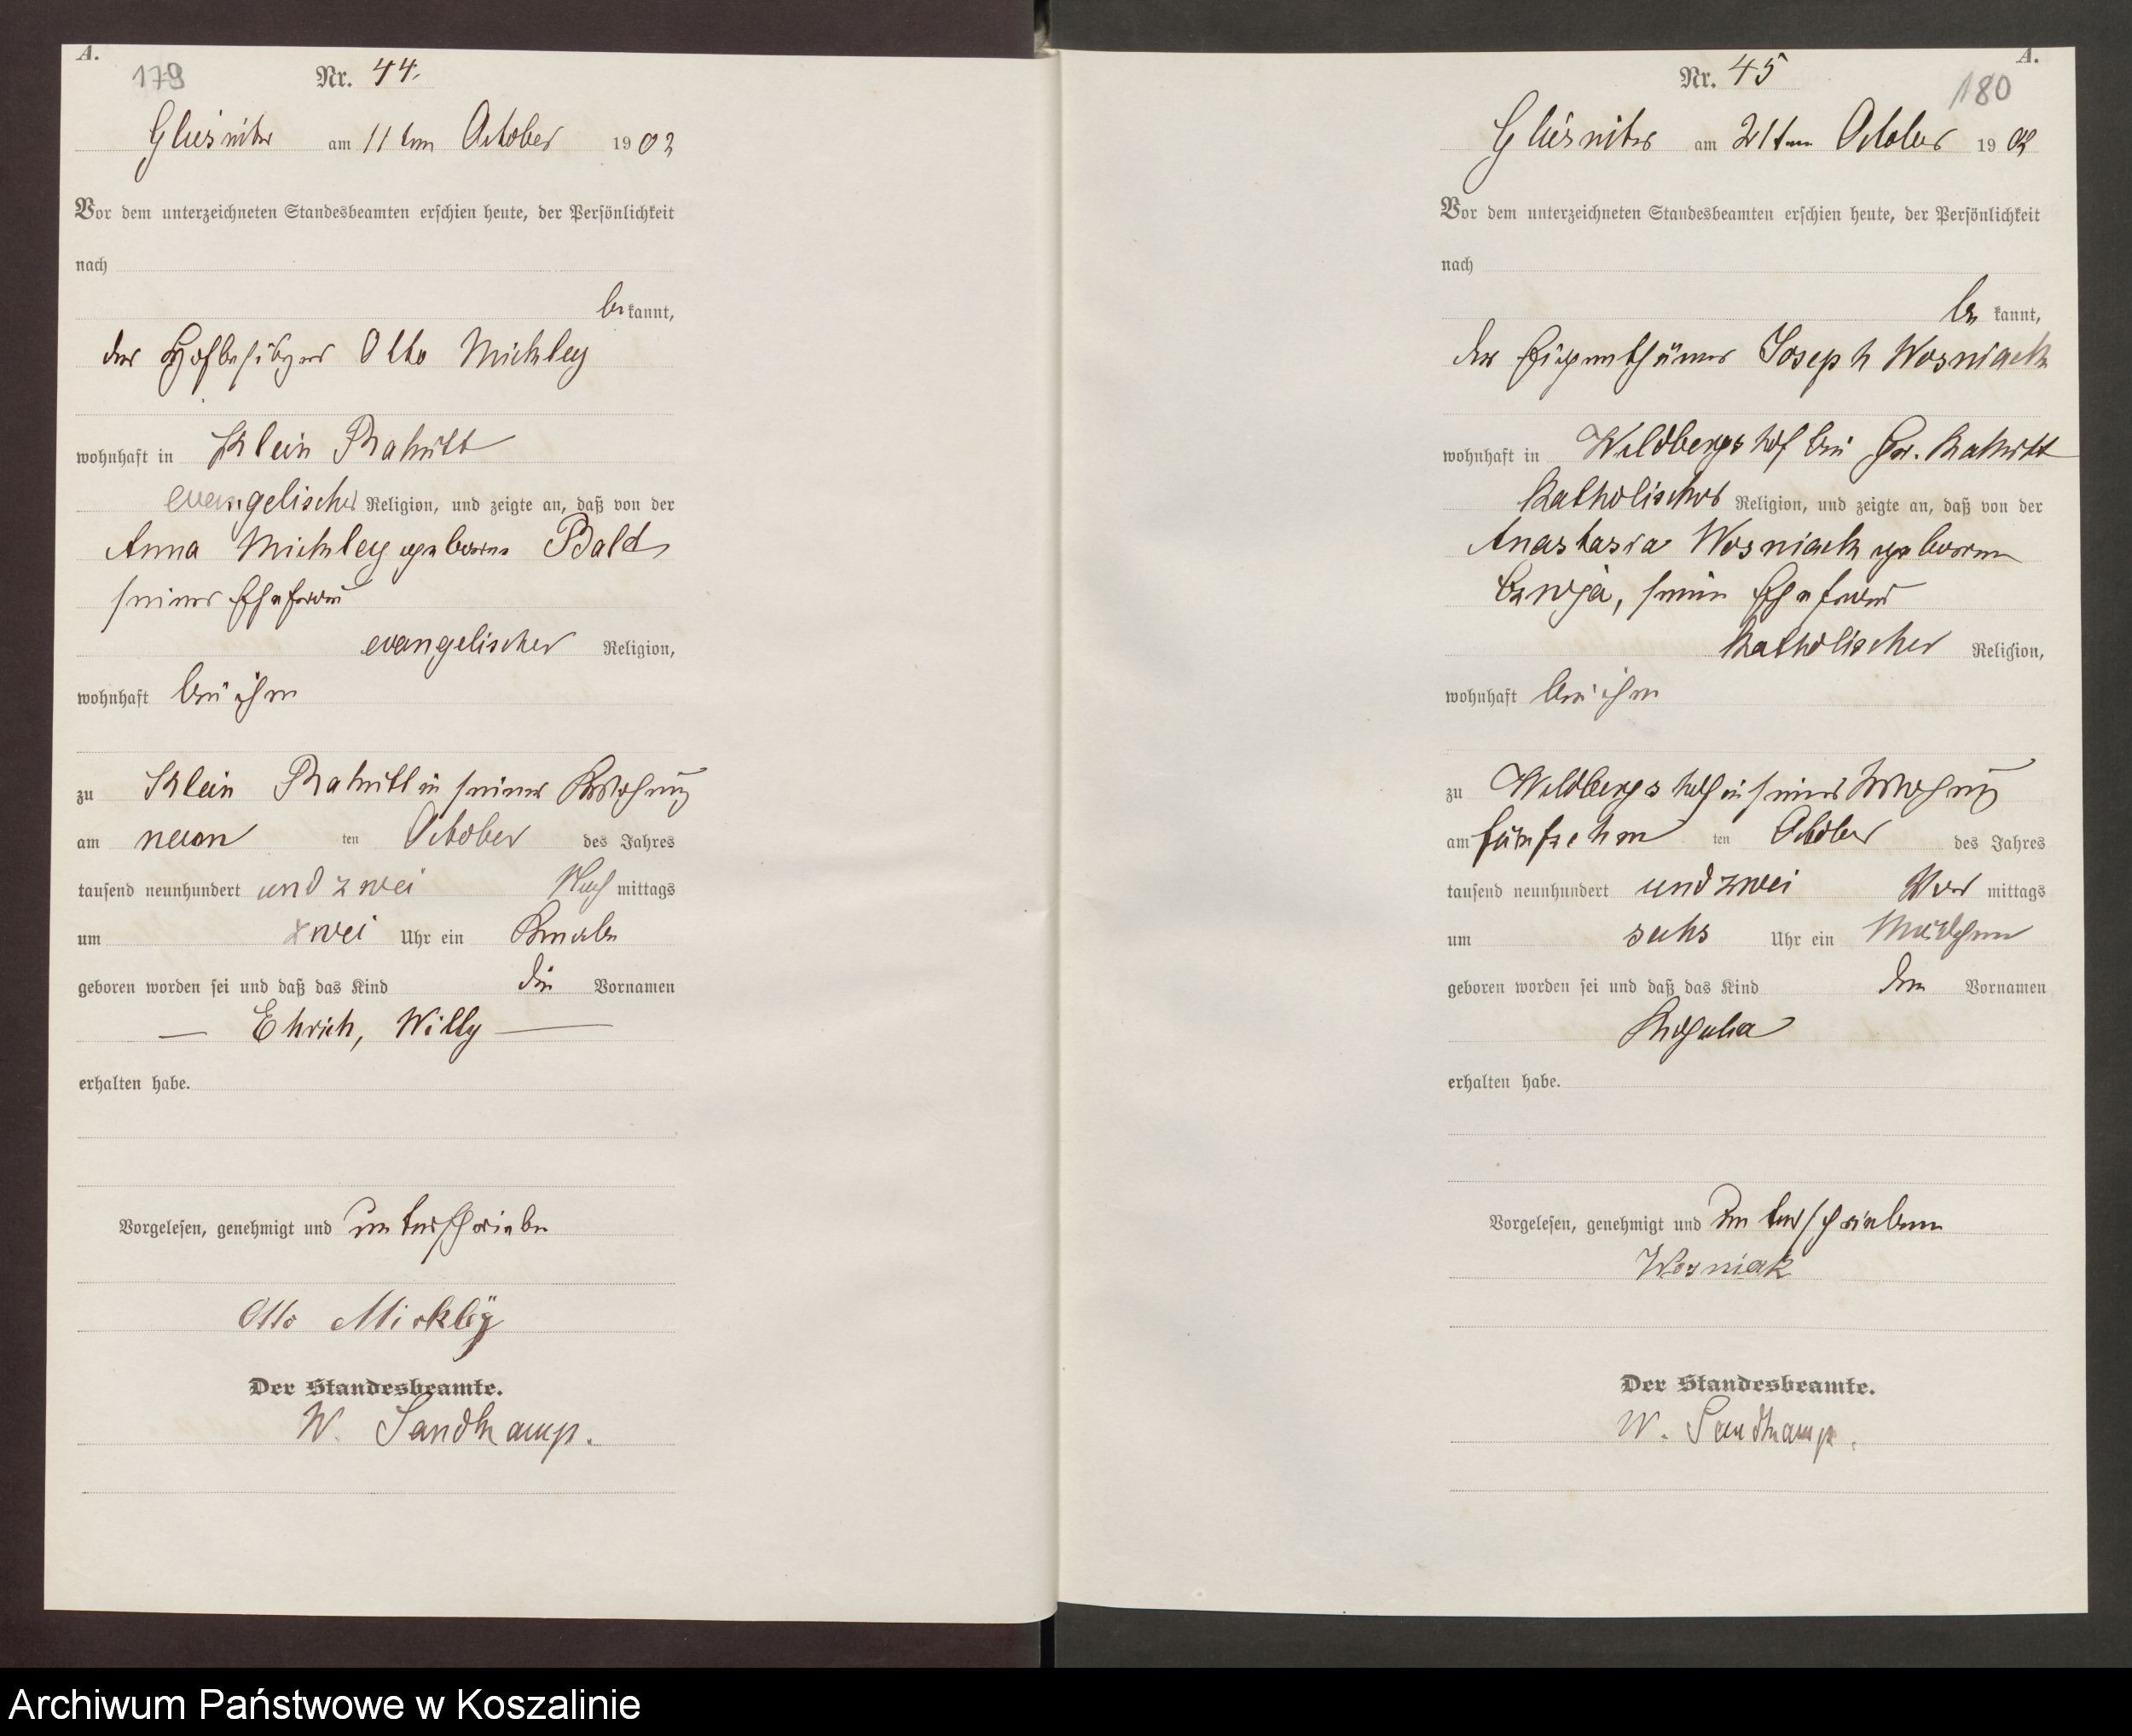 A.
179
Nr. 44.
Gliesnitz am 11ten October 1902
Vor dem unterzeichneten Standesbeamten erschien heute, der Persönlichkeit
nach
bekannt,
der Hofbesitzer Otto Mickley
wohnhaft in Klein Rakitt
evangelischer Religion, und zeigte an, daß von der
Anna Mickley geborene Bald
seiner Ehefrau
evangelischer Religion,
wohnhaft bei ihm
zu Klein Rakitt in seiner Wohnung
am neun ten October des Jahres
tausend neunhundert und zwei Nach mittags
um zwei Uhr ein Knabe
geboren worden sei und daß das Kind die Vornamen
— Ehrich, Willy —
erhalten habe.
Vorgelesen, genehmigt und unterschrieben
Otto Mickleÿ
Der Standesbeamte.
W. Sandkamp.
A.
180
Nr. 45
Gliesnitz am 21ten October 1902
Vor dem unterzeichneten Standesbeamten erschien heute, der Persönlichkeit
nach
be kannt,
der Eigenthümer Joseph Wosniack
wohnhaft in Wildbergshof bei Gr. Rakitt
katholischer Religion, und zeigte an, daß von der
Anastasia Wosniack geborene
seiner Ehefrau
katholischer Religion,
wohnhaft bei ihm
zu Wildbergshof in seiner Wohnung
am fünfzehn ten October des Jahres
tausend neunhundert und zwei Vor mittags
um sechs Uhr ein Mädchen
geboren worden sei und daß das Kind den Vornamen
erhalten habe.
Vorgelesen, genehmigt und unterschrieben
Wosniak
Der Standesbeamte.
W. Sandkamp.
Archiwum Państwowe w Koszalinie